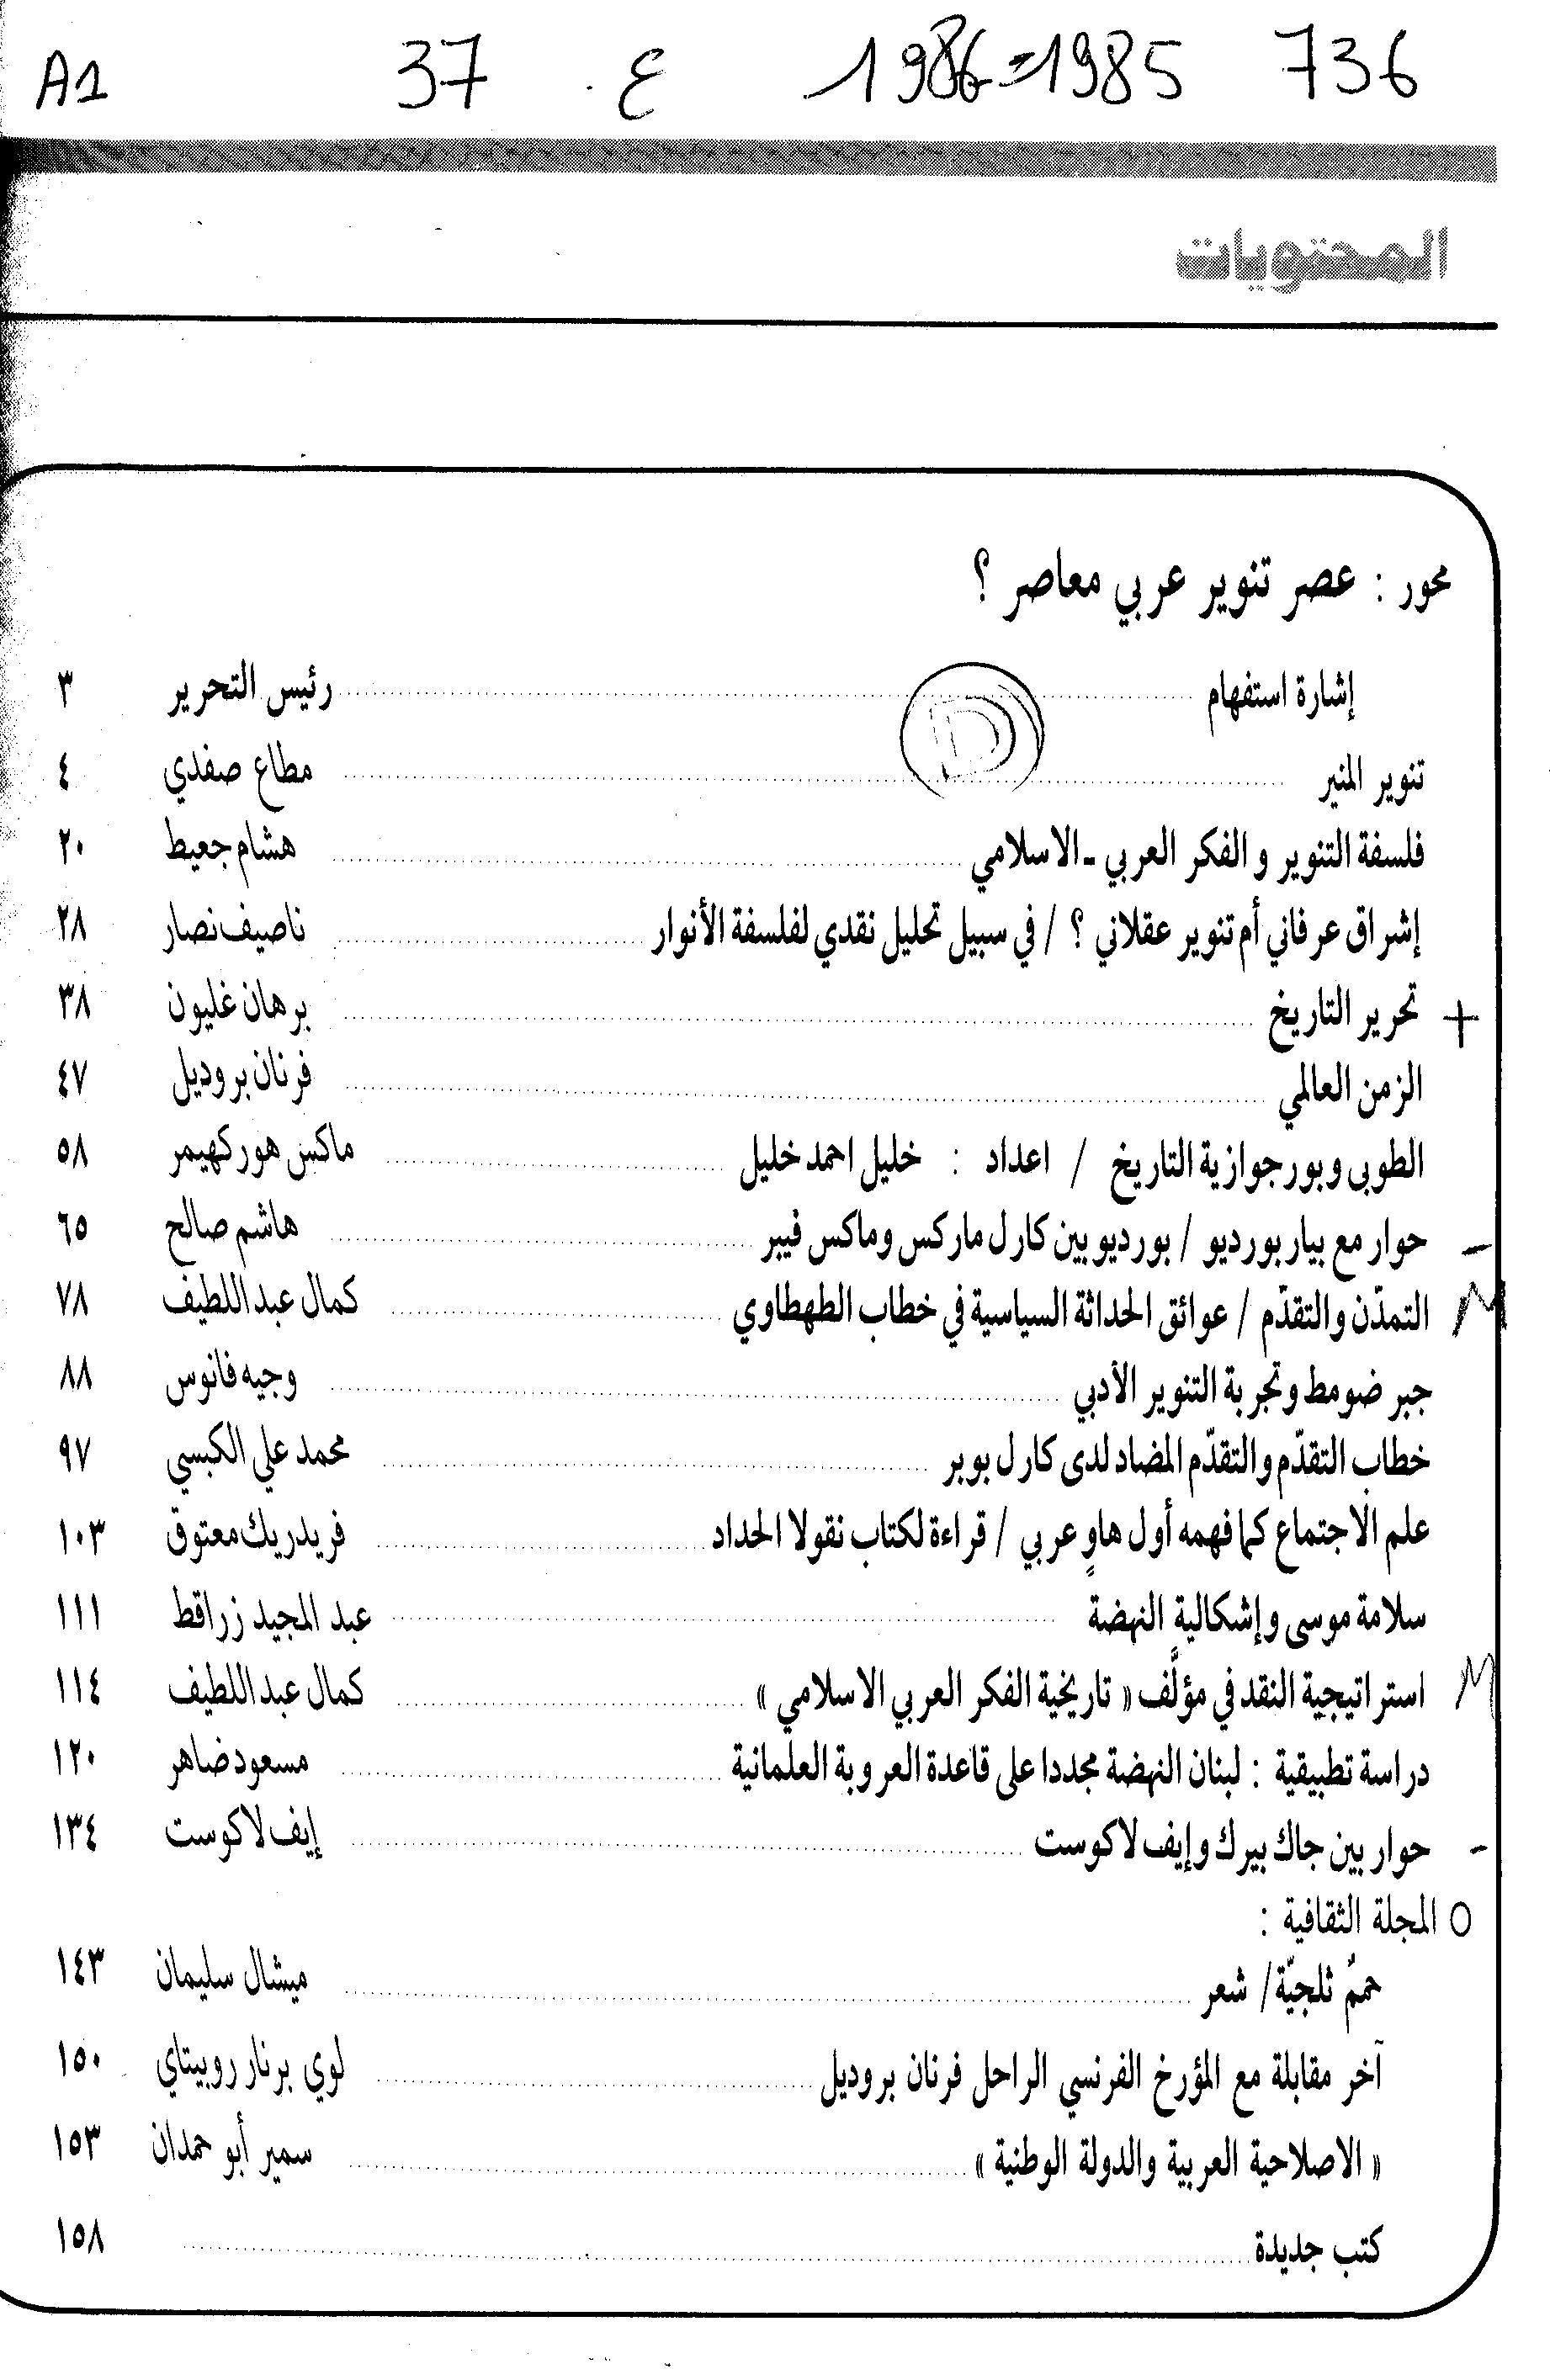 A1 37 ع 1986-1985 736
المحتويات
محور : عصر تنوير عربي معاصر ؟
إشارة استفهام رئيس التحرير ٣
D
تنوير المنير مطاع صفدي ٤
فلسفة التنوير و الفكر العربي - الاسلامي هشام جعيط ٢٠
إشراق عرفاني أم تنوير عقلاني ؟ / في سبيل تحليل نقدي لفلسفة الأنوار ناصيف نصار ٢٨
+ تحرير التاريخ برهان غليون ٣٨
الزمن العالمي فرنان بروديل ٤٧
الطوبى وبورجوازية التاريخ / اعداد : خليل احمد خليل ماكس هوركهيمر ٥٨
- حوار مع بيار بورديو / بورديو بين كارل ماركس وماكس فيبر هاشم صالح ٦٥
M التمدّن والتقدّم / عوائق الحداثة السياسية في خطاب الطهطاوي كمال عبد اللطيف ٧٨
جبر ضومط وتجربة التنوير الأدبي وجيه فانوس ٨٨
خطاب التقدّم والتقدّم المضاد لدى كارل بوبر محمد علي الكبسي ٩٧
علم الاجتماع كما فهمه أول هاوٍ عربي / قراءة لكتاب نقولا الحداد فريدريك معتوق ١٠٣
سلامة موسى وإشكالية النهضة عبد المجيد زراقط ١١١
M استراتيجية النقد في مؤلَّف « تاريخية الفكر العربي الاسلامي » كمال عبد اللطيف ١١٤
دراسة تطبيقية : لبنان النهضة مجددا على قاعدة العروبة العلمانية مسعود ضاهر ١٢٠
- حوار بين جاك بيرك وإيف لاكوست إيف لاكوست ١٣٤
O المجلة الثقافية :
حممٌ ثلجيّة / شعر ميشال سليمان ١٤٣
آخر مقابلة مع المؤرخ الفرنسي الراحل فرنان بروديل لوي برنار روبيتاي ١٥٠
« الاصلاحية العربية والدولة الوطنية » سمير أبو حمدان ١٥٣
كتب جديدة ١٥٨